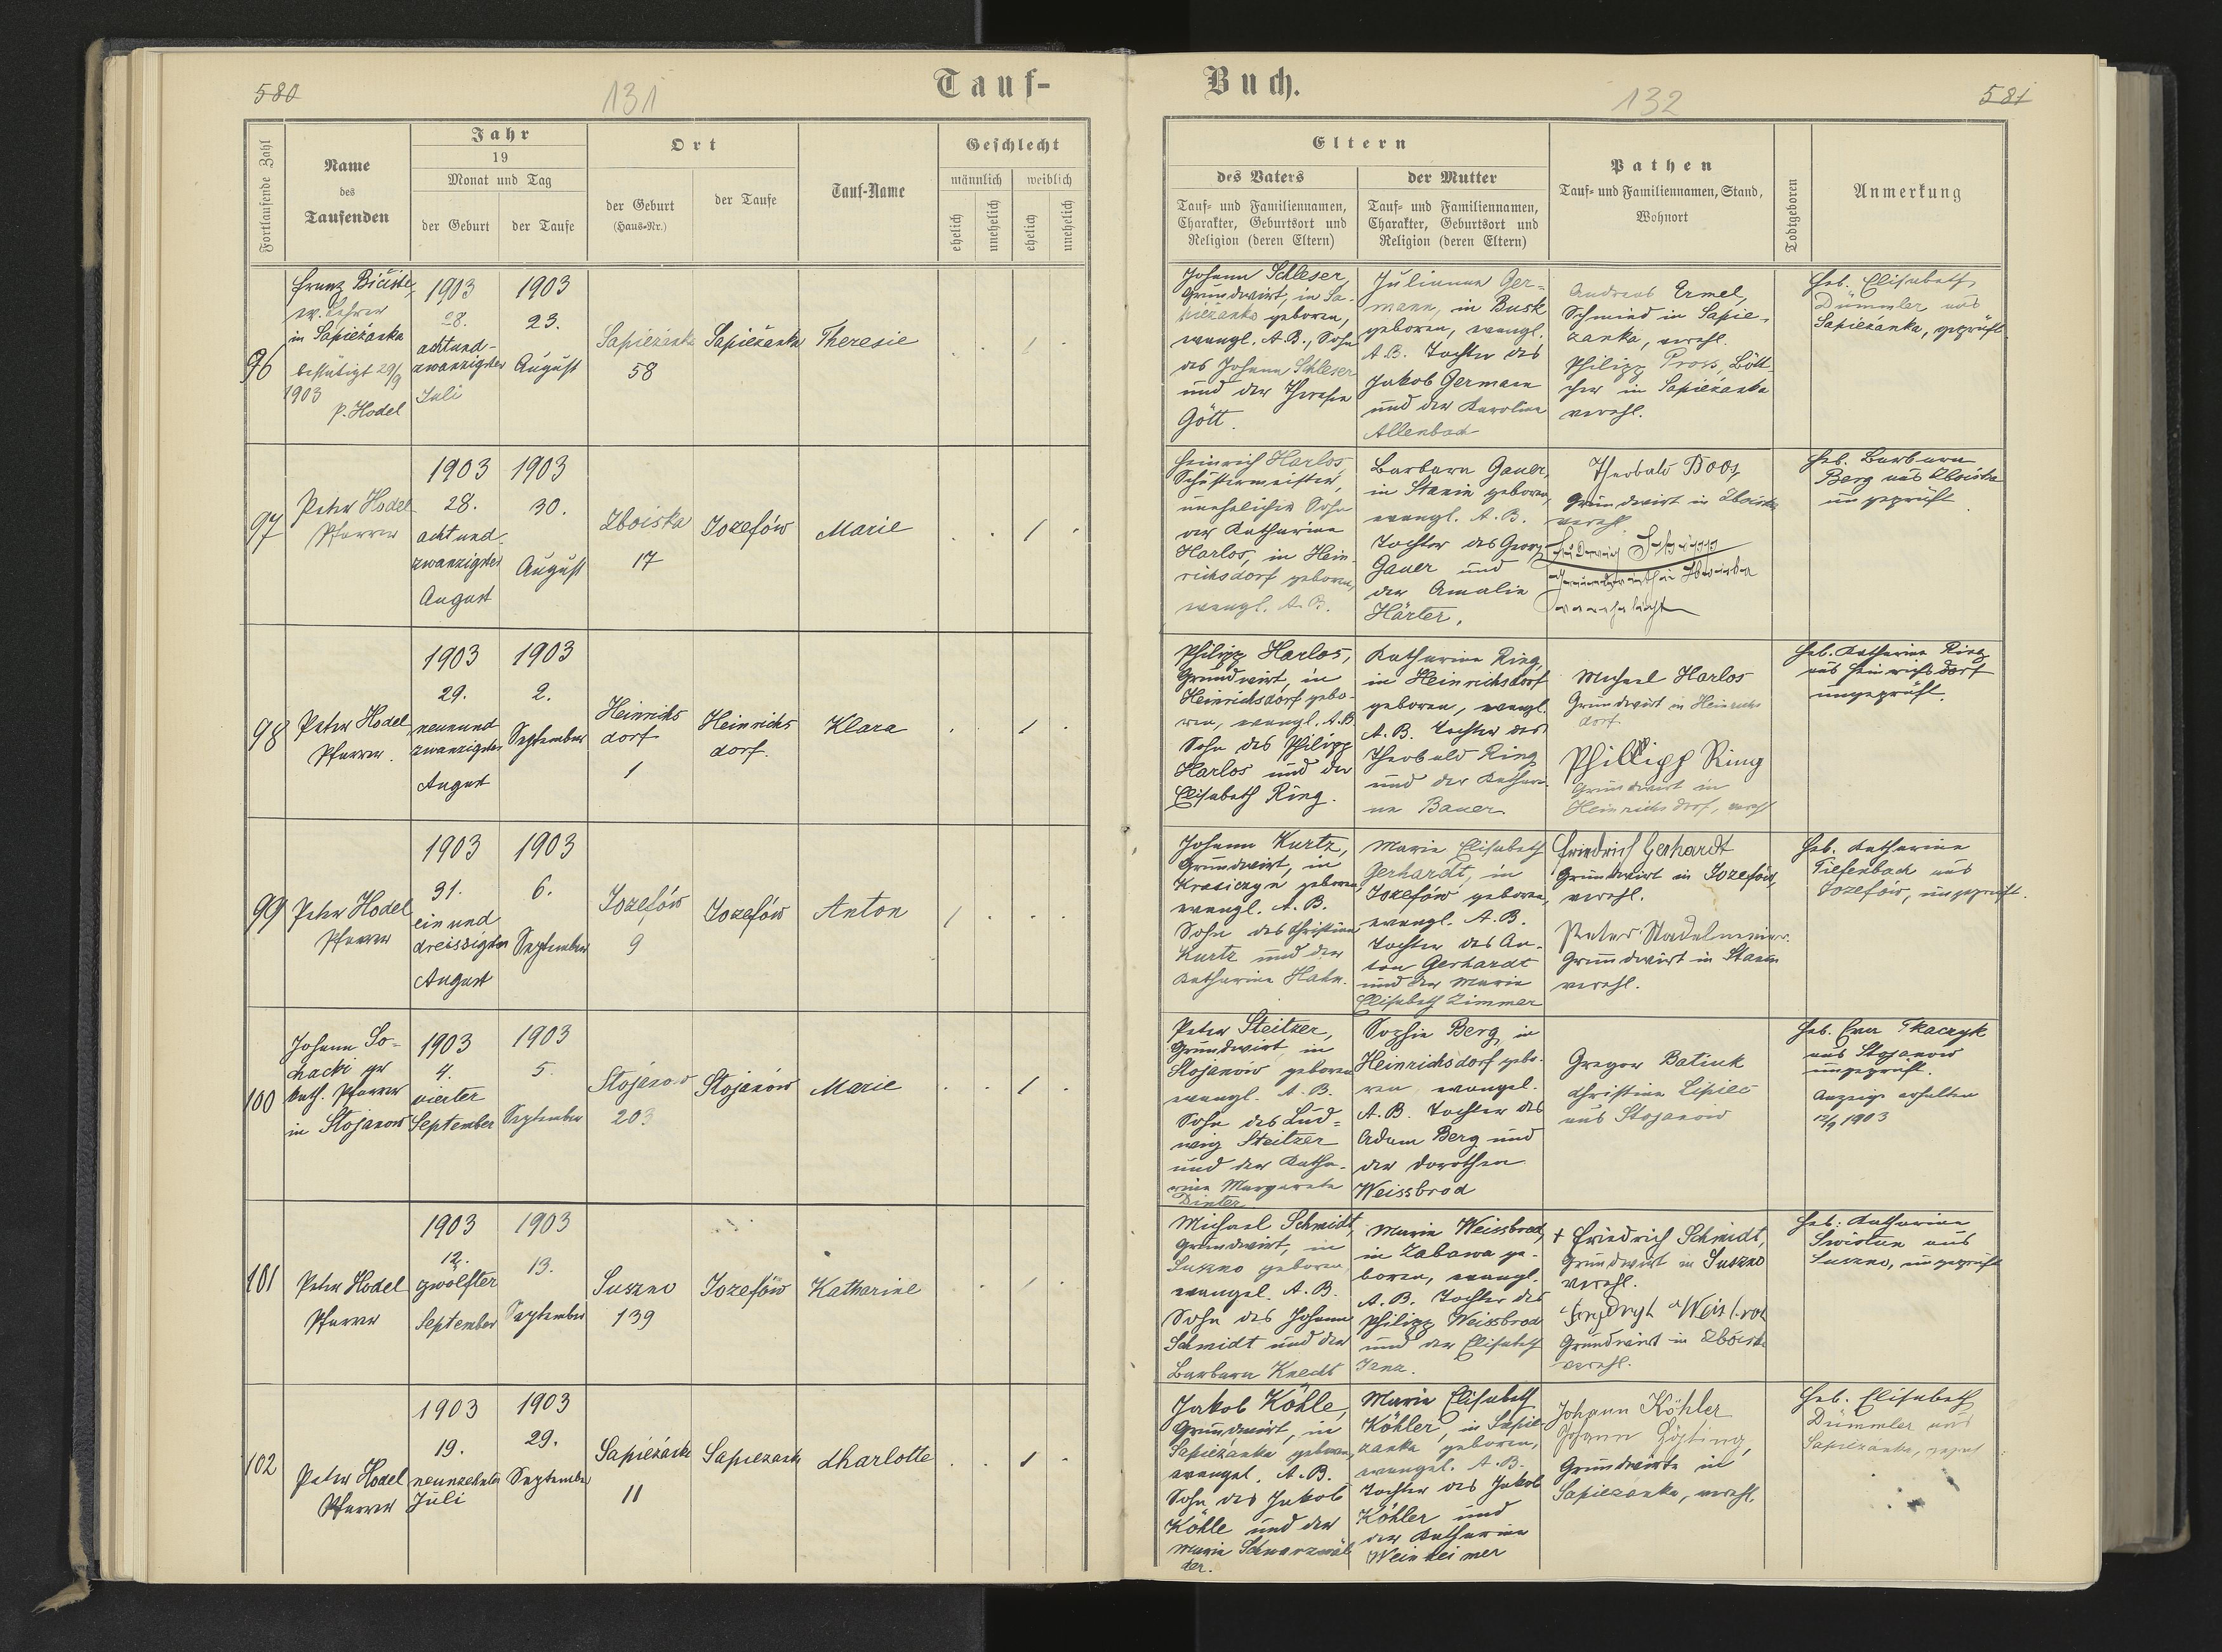 580
131
Tauf-
Fortlaufende Zahl
Name
des
Taufenden
Jahr
19
Monat und Tag
der Geburt
der Taufe
Ort
der Geburt
(Haus-Nr.)
der Taufe
Tauf-Name
Geschlecht
männlich
weiblich
ehelich
unehelich
ehelich
unehelich
96
Franz
in Sapieżanka
bestätigt 29/9
1903
P. Hodel
1903
28.
achtund-
zwanzigster
Juli
1903
23.
August
Sapieżanka
58
Sapieżanka
Theresie
1
97
Peter Hodel
Pfarrer
1903
28.
achtund-
zwanzigster
August
1903
30.
August
Zboiska
17
Jozefów
Marie
1
98
Peter Hodel,
Pfarrer.
1903
29.
neunund
zwanzigster
August
1903
2.
September
Heinrichs
dorf
1
Heinrichs
dorf.
Klara
1
99
Peter Hodel
Pfarrer
1903
31.
ein und
dreissigster
August
1903
6.
September
Jozefów
9
Jozefów
Anton
1
100
Johann So-
chacki gr
kath. Pfarrer
in Stojanow
1903
4.
vierter
September
1903
5.
September
Stojanow
203
Stojanów
Marie
1
101
Peter Hodel
Pfarrer
1903
12.
zwölfter
September
1903
13.
September
Suszno
139
Jozefów
Katharine
1
102
Peter Hodel
Pfarrer
1903
19.
neunzehnter
Juli
1903
29.
September
Sapieżanka
11
Sapiezanka
Charlotte
1
Buch.
132
581
Eltern
des Vaters
Tauf- und Familiennamen,
Charakter, Geburtsort und
Religion (deren Eltern)
der Mutter
Tauf- und Familiennamen,
Charakter, Geburtsort und
Religion (deren Eltern)
Pathen
Tauf- und Familiennamen, Stand,
Wohnort
Todtgeboren
Anmerkung
Johann Schleser,
Grundwirt, in Sa-
piezanka geboren,
evangl. A.B., Sohn
des Johann Schleser
und der Theresia
Gött.
Julianna Ger-
mann, in Busk
geboren, evangl.
A.B. Tochter des
Jakob Germann
und der Karolina
Allenbach
Andreas Ermel,
Schmied in Sapie-
zanka, verehl.
Philipp Pross, Bött
cher in Sapieżanka
verehl.
Heb. Elisabeth
Dümmler aus
Sapieżanka, geprüft
Heinrich Harlos,
Schustermeister,
unehelicher Sohn
der Katharina
Harlos, in Hein-
richsdorf geboren,
evangl. A.B.
Barbara Gauer,
in Stanin geboren,
evangl. A.B.
Tochter des Georg
Gauer und
der Amalia
Härter.
Theobald Boos,
Grundwirt in Zboiska
verehl.
Grundwirth in Zboiska
verehelicht
Heb. Barbara
Berg aus Zboiska
ungeprüft
Philipp Harlos,
Grundwirt, in
Heinrichsdorf gebo-
ren, evangl. A.B.
Sohn des Philipp
Harlos und der
Elisabeth Ring.
Katharina Ring,
in Heinrichsdorf
geboren, evangl.
A.B. Tochter des
Theobald Ring
und der Kathari-
na Bauer.
Michael Harlos
Grundwirt in Heinrichs
dorf.
Phillipp Ring
Grundwirt in
Heinrichsdorf, verehl
Heb. Katharina Ring
aus Heinrichsdorf
ungeprüft.
Johann Kurtz,
Grundwirt, in
Krasiczyn geboren,
evangl. A.B.
Sohn des Christian
Kurtz und der
Katharina Hahn.
Maria Elisabeth
Gerhardt, in
Jozefów geboren,
evangl. A.B.
Tochter des An-
ton Gerhardt
und der Maria
Elisabeth Zimmer
Friedrich Gerhardt
Grundwirt in Jozefów,
verehl.
Peter Stadelmeier
Grundwirt in Stanin
verehl.
Heb. Katharina
Tiefenbach aus
Jozefów, ungeprüft.
Peter Steitzer,
Grundwirt in
Stojanow geboren
evangl. A.B.
Sohn des Lud-
wig Steitzer
und der Katha-
rina Margareta
Dinter.
Sophia Berg, in
Heinrichsdorf gebo-
ren evangel.
A.B. Tochter des
Adam Berg und
der Dorothea
Weissbrod
Gregor Batiuk
Christina Lipiec
aus Stojanow
Heb. Ewa Tkaczyk
aus Stojanow
ungeprüft.
Anzeige erhalten
12/9 1903
Michael Schmidt,
Grundwirt, in
Suszno geboren,
evangel. A.B.
Sohn des Johann
Schmidt und der
Barbara Knecht
Maria Weissbrod,
in Zabawa ge-
boren, evangl.
A.B. Tochter des
Philipp Weissbrod
und der Elisabeth
Janz.
+ Friedrich Schmidt,
Grundwirt in Suszno
verehl.
Grundwirt in Zboiska
verehl.
Heb. Katharina
aus
Suszno, ungeprüft
Jakob Köhle,
Grundwirt, in
Sapieżanka geboren,
evangel. A.B.
Sohn des Jakob
Köhle und der
Maria Schwarzwäl
der.
Maria Elisabeth
Köhler, in Sapie-
zanka geboren,
evangel. A.B.
Tochter des Jakob
Köhler und
der Katharina
Weinheimer
Johann Köhler
Johann
Grundwirte in
Sapiezanka, verehl.
Heb. Elisabeth
Dümmler aus
Sapieżanka, geprüft